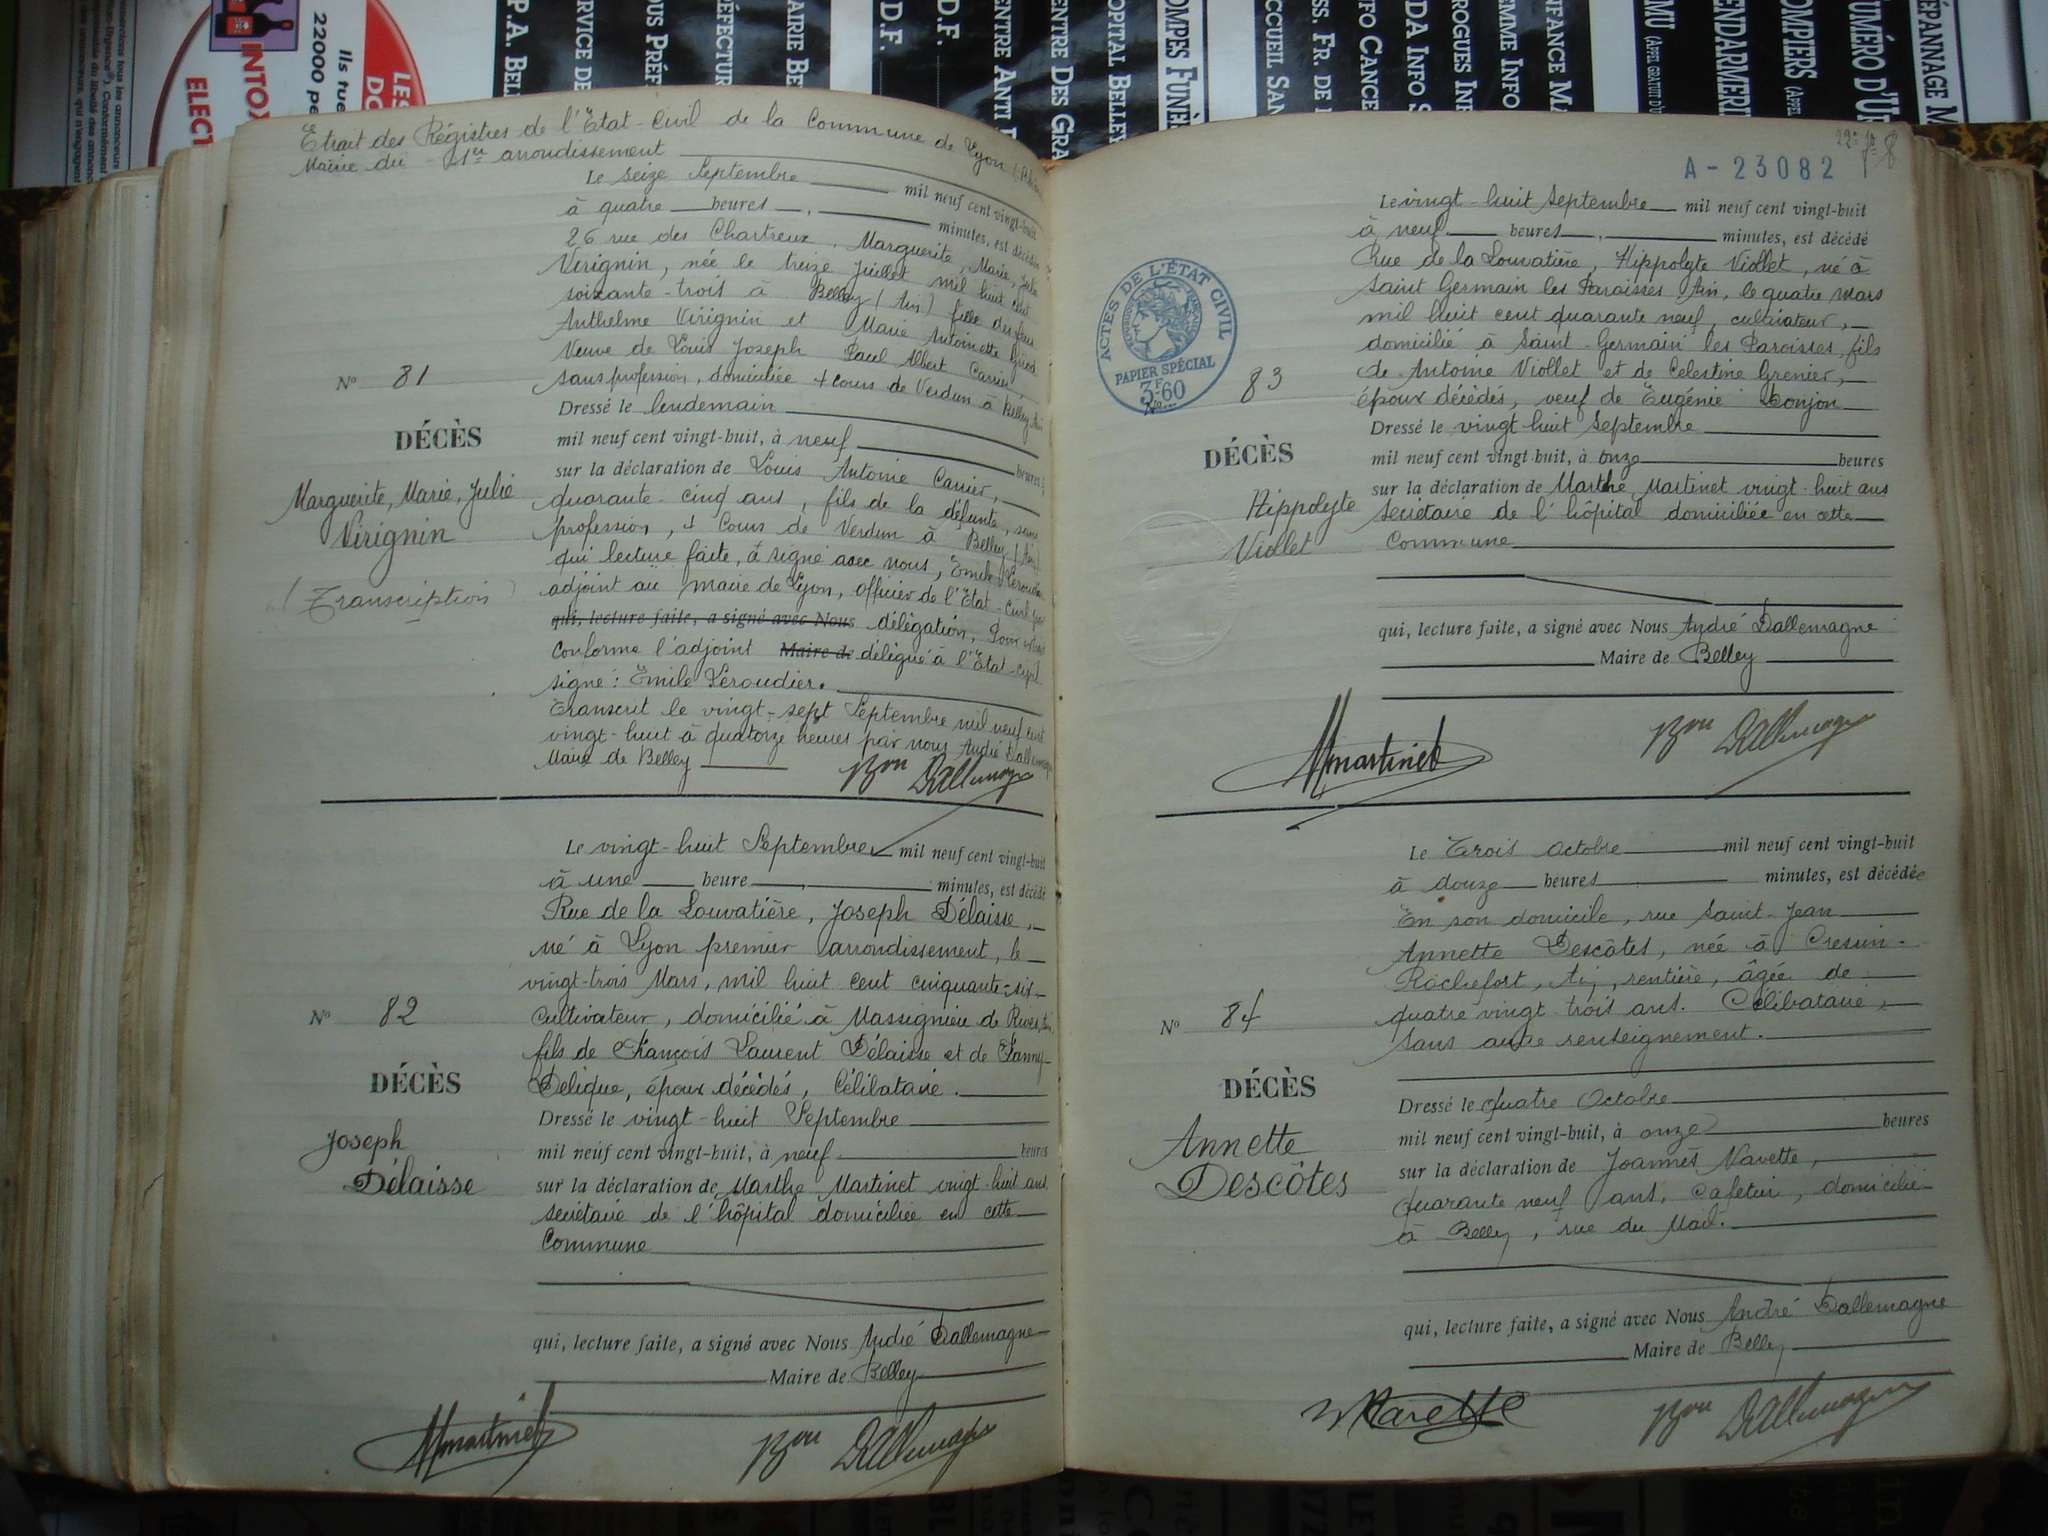 LES
DO
Ils tue
22000 pe
INTOX
ELECT
P.A. BEL
RVICE DE
OUS PRÉF
DÉFECTUR
AIRIE BE
D.D.F.
D.F.
ENTRE ANTI
ENTRE DES GRA
OPITAL BELLEY
OMPES FUNÈ
CCUEIL SAN
SS. FR. DE
NFO CANCE
DA INFO S
ROGUES INF
EMME INFO
NFANCE MA
MU (APPEL GRATUIT D'U
ENDARMERI
OMPIERS (APPEL
UMÉRO D'UR
ÉPANNAGE M
Etrait des Régistres de l'Etat-Civil de la Commune de Lyon
Mairie du 1er arrondissement
Le seize Septembre mil neuf cent vingt-huit
à quatre heures, minutes, est décédée
26 rue des Chartreux, Marguerite, Marie, Julie
Virignin, née le treize Juillet mil huit cent
soixante-trois à Belley (Ain) fille des feus
Anthelme Virignin et Marie Antoinette
Veuve de Louis Joseph Paul Albert Carrier,
sans profession, domiciliée 4 cours de Verdun à Belley, Ain
Nº 81
Dressé le lendemain
DÉCÈS
mil neuf cent vingt-huit, à neuf heures
sur la déclaration de Louis Antoine Carrier,
Marguerite, Marie, Julie
Virignin
(Transcription)
quarante-cinq ans, fils de la défunte, sans
profession, 4 Cours de Verdun à Belley, (Ain)
qui lecture faite, a signé avec nous, Emile Léroudier
adjoint au maire de Lyon, officier de l'Etat-Civil par
qui, lecture faite, a signé avec Nous délégation, Pour extrait
Conforme l'adjoint Maire de délégué à l'Etat-civil
signé: Emile Léroudier.
Transcrit le vingt-sept Septembre mil neuf cent
vingt-huit à quatorze heures par nous André Dallemagne
Maire de Belley
Bon Dallemagne
Le vingt-huit Septembre mil neuf cent vingt-huit
à une heure, minutes, est décédé
Rue de la Louvatière, Joseph Délaisse,
né à Lyon premier arrondissement, le
vingt-trois Mars, mil huit cent cinquante-six
Nº 82
Cultivateur, domicilié à Massignieu de Rives, Ain
fils de François Laurent Délaisse et de Fanny
DÉCÈS
Delique, époux décédés, Célibataire.
Dressé le vingt-huit Septembre
Joseph
Délaisse
mil neuf cent vingt-huit, à neuf heures
sur la déclaration de Marthe Martinet vingt-huit ans
secrétaire de l'hôpital domiciliée en cette
Commune
qui, lecture faite, a signé avec Nous André Dallemagne
Maire de Belley
MMartinet
Bon Dallemagne
A-23082
Le vingt-huit Septembre mil neuf cent vingt-huit
à neuf heures, minutes, est décédé
Rue de la Louvatière, Hippolyte Viollet, né à
Saint Germain les Paroisses Ain, le quatre Mars
mil huit cent quarante neuf, cultivateur,
domicilié à Saint-Germain les Paroisses, fils
de Antoine Viollet et de Celestine Grenier,
époux décédés, veuf de Eugénie Conjon
ACTES DE L'ÉTAT CIVIL
PAPIER SPÉCIAL
3F60
83
Dressé le vingt huit Septembre
DÉCÈS
mil neuf cent vingt-huit, à onze heures
sur la déclaration de Marthe Martinet vingt-huit ans
Hippolyte
Viollet
secrétaire de l'hôpital domiciliée en cette
Commune
qui, lecture faite, a signé avec Nous André Dallemagne
Maire de Belley
MMartinet
Bon Dallemagne
Le Trois Octobre mil neuf cent vingt-huit
à douze heures minutes, est décédée
En son domicile, rue Saint-Jean
Annette Descôtes, née à Cressin-
Rochefort, Ain, rentière, âgée de
Nº 84
quatre vingt trois ans. Célibataire,
sans autre renseignement.
DÉCÈS
Dressé le Quatre Octobre
mil neuf cent vingt-huit, à onze heures
Annette
Descôtes
sur la déclaration de Joannès Navette,
quarante neuf ans, Cafetier, domicilié
à Belley, rue du Mail.
qui, lecture faite, a signé avec Nous André Dallemagne
Maire de Belley
Navette
Bon Dallemagne